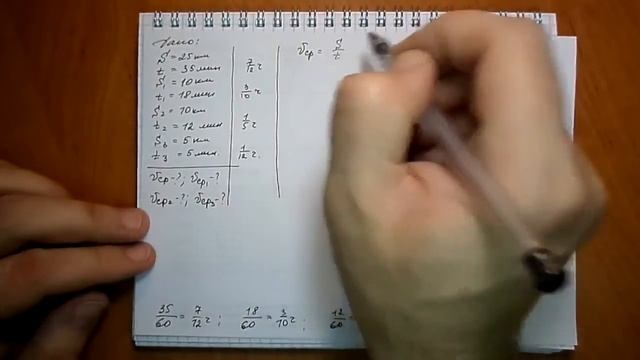 Дано:
S = 25 км
t = 35 мин 7/12 ч
S₁ = 10 км
t₁ = 18 мин 3/10 ч
S₂ = 10 км
t₂ = 12 мин 1/5 ч
S₃ = 5 км
t₃ = 5 мин. 1/12 ч.
υср-?; υср₁-?
υср₂-?; υср₃-?
υср = S/t
35/60 = 7/12 ч; 18/60 = 3/10 ч; 12/60 =